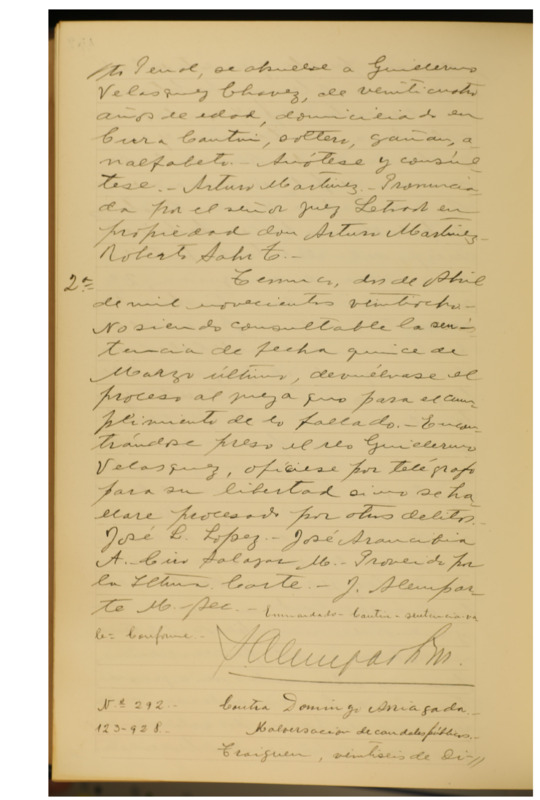 to Penal, se absuelve a Guillermo
Velasquez Chavez, de veinticuatro
años de edad, domiciliado en
Cura Cautin, soltero, gañan, a
nalfabeto.- Anótese y consúl
tese.- Arturo Martinez.- Pronuncia
da por el señor Juez Letrado en
propiedad don Arturo Martinez.-
Roberto
2ª
Temuco, dos de Abril
de mil novecientos veintiocho.-
No siendo consultable la sen-
tencia de fecha quince de
Marzo último, devuélvase el
proceso al juez a quo para el cum
plimiento de lo fallado.- Encon
trándose preso el reo Guillermo
Velasquez, ofíciese por telégrafo
para su libertad si no se ha
llare procesado por otros delitos.-
José L. Lopez.- José Arancibia
A.- Ciro Salazar M.- Proveido por
la Iltma. Corte.- J. Alempar
te M. sec.- Enmendado- Cautin- sentencia- va
le= Conforme.-
N.º 292.-
Contra Domingo Arriagada.-
123-928.-
Malversacion de caudales públicos.-
Traiguen, veintiseis de Di-//